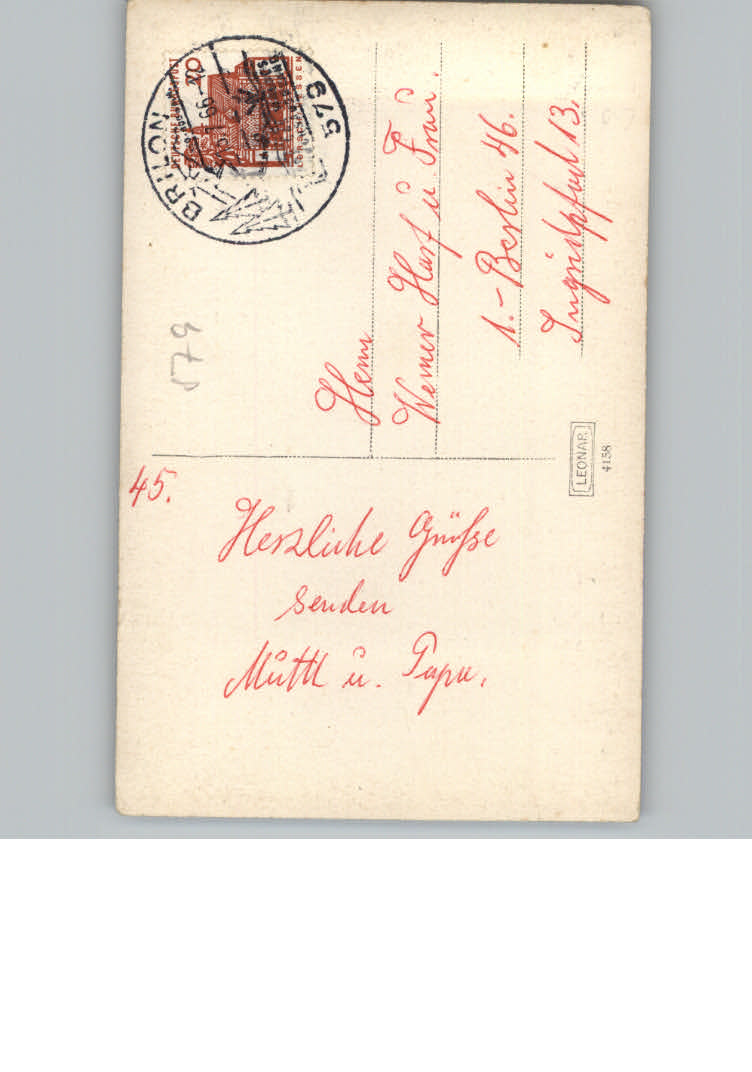 45.
Herzliche Grüße
senden
Mutti u. Papa.
Herrn
Werner Harf u. Frau.
1.- Berlin 46.
Ingridpfad 13.
579
579
BRILON
20
DEUTSCHE BUNDESPOST
LEONAR
4158